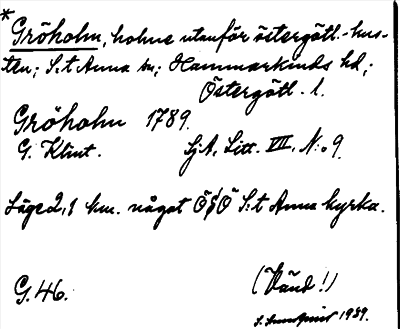 * Gröholm, holme utanför östergötl.-kus-
ten; S:t Anna sn; Hammarkinds hd;
Östergötl. l.
Gröholm 1789.
G. Klint. SjA, Litt. VII, N:o 9.
Läge 2,1 km. något ÖSÖ S:t Anna kyrka.
G. 46. (Vänd!)
1989.